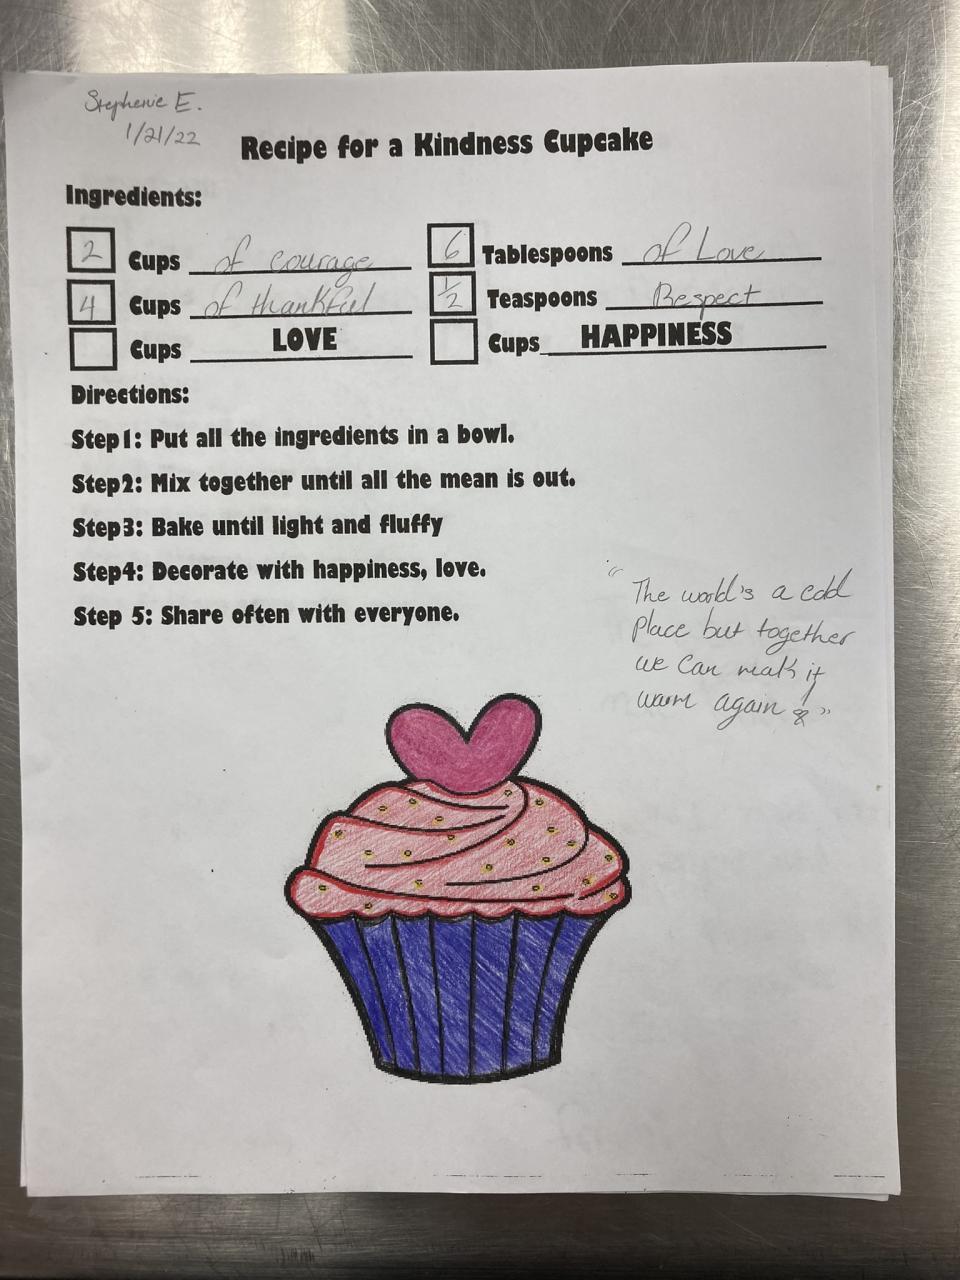 Stephenie E.
1/21/22
Recipe for a Kindness Cupcake
Ingredients:
2 Cups of courage
6 Tablespoons of Love
4 Cups of thankful
1/2 Teaspoons Respect
Cups LOVE
Cups HAPPINESS
Directions:
Step1: Put all the ingredients in a bowl.
Step2: Mix together until all the mean is out.
Step3: Bake until light and fluffy
Step4: Decorate with happiness, love.
Step 5: Share often with everyone.
"The world's a cold
Place but together
we can mak it
warm again"